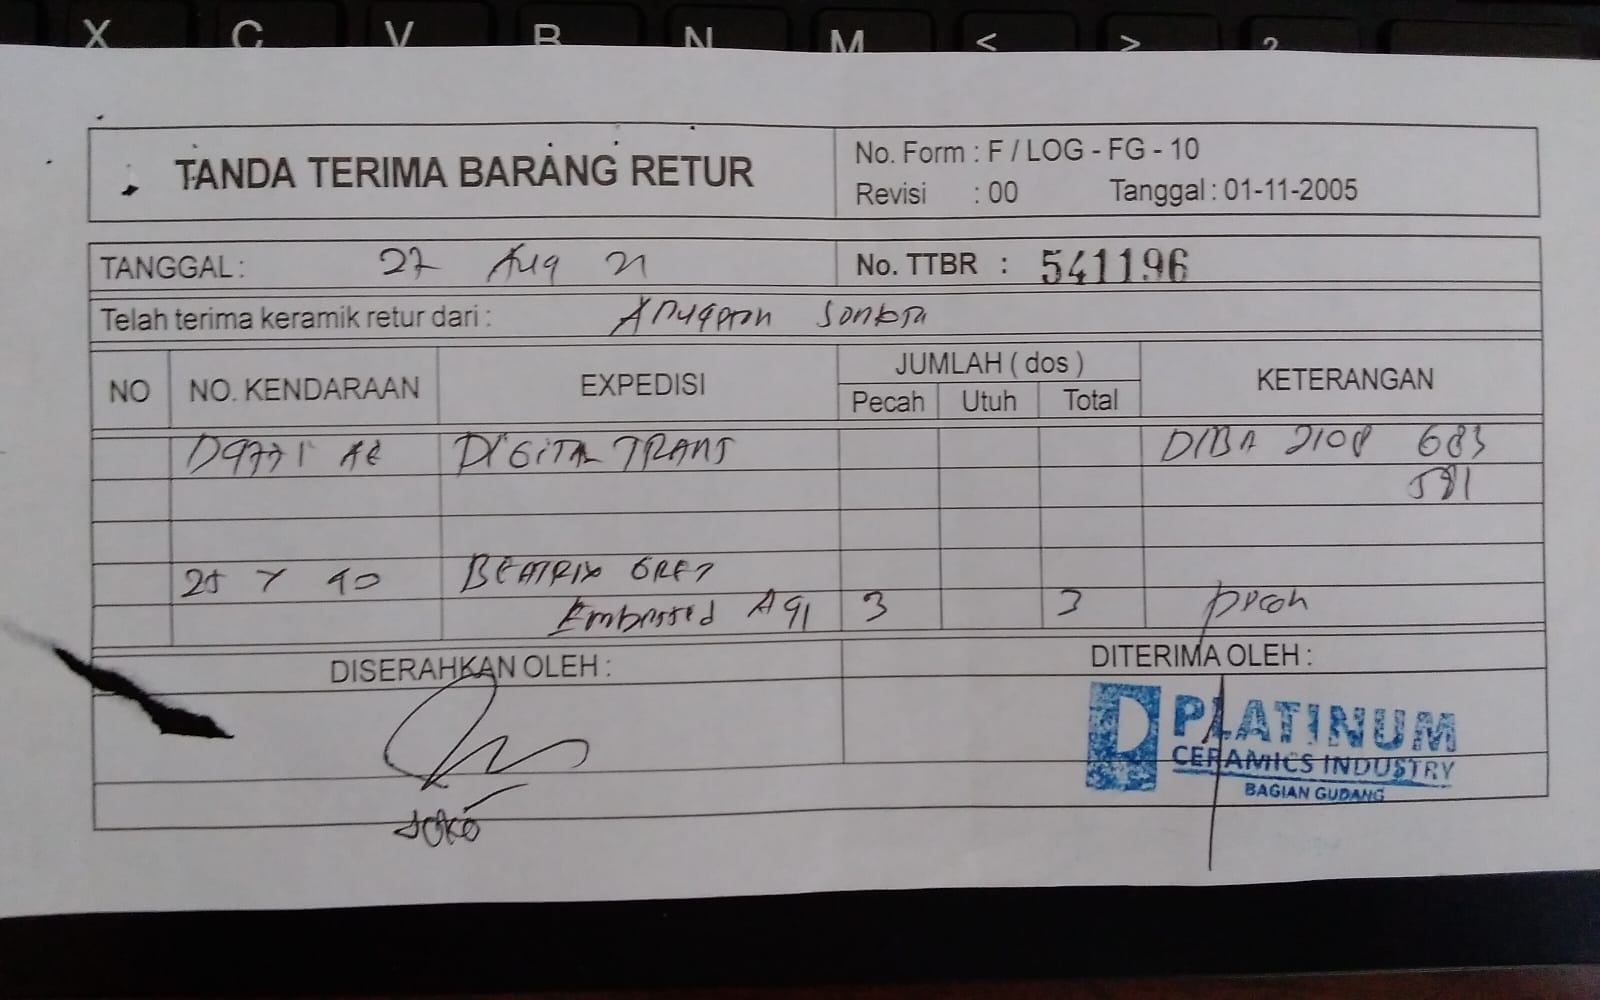 X C V B N M < > ?
TANDA TERIMA BARANG RETUR
No. Form : F / LOG - FG - 10
Revisi : 00 Tanggal : 01-11-2005
TANGGAL : 27 Aug 21
No. TTBR : 541196
Telah terima keramik retur dari :
NO NO. KENDARAAN EXPEDISI JUMLAH ( dos ) KETERANGAN
Pecah Utuh Total
D9771 AE DIGITAL TRANS DIBA 2108 683
581
25 X 40 BEATRIX GREY
Embossed A91 3 3 pecah
DISERAHKAN OLEH :
DITERIMA OLEH :
PLATINUM
CERAMICS INDUSTRY
BAGIAN GUDANG
JOKO